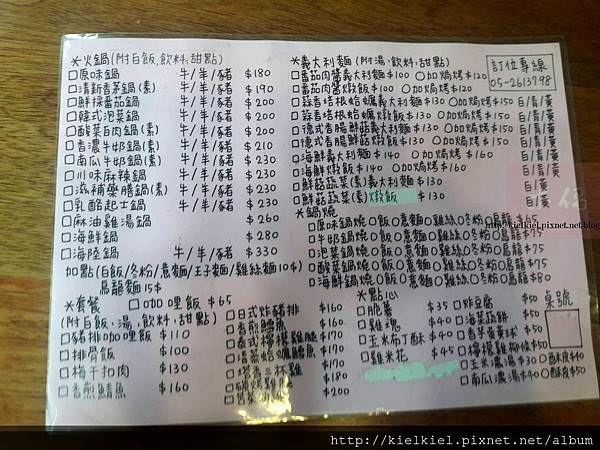 *火鍋(附白飯,飲料,甜點)
□原味鍋 牛/羊/豬 $180
□清新香茅鍋(素) 牛/羊/豬 $190
□鮮採番茄鍋 牛/羊/豬 $200
□韓式泡菜鍋 牛/羊/豬 $200
□酸菜白肉鍋(素) 牛/羊/豬 $200
□香濃牛奶鍋(素) 牛/羊/豬 $210
□南瓜牛奶鍋(素) 牛/羊/豬 $230
□川味麻辣鍋 牛/羊/豬 $230
□滋補藥膳鍋(素) 牛/羊/豬 $230
□乳酪起士鍋 牛/羊/豬 $230
□麻油雞湯鍋 $260
□海鮮鍋 $280
□海陸鍋 牛/羊/豬 $330
加點(白飯/冬粉/意麵/王子麵/雞絲麵10$)
烏龍麵15$
*套餐 □咖哩飯 $65
(附白飯,湯,飲料,甜點)
□豬排咖哩飯 $110
□排骨飯 $100
□梅干扣肉 $130
□香煎鯖魚 $160
□日式炸豬排 $160
□香煎鱈魚 $160
□泰式檸檬雞腿 $170
□清蒸蛤蠣鱈魚 $170
□塔香三杯雞 $180
$200
*義大利麵(附湯,飲料,甜點)
訂位專線
05-2613798
□番茄肉醬義大利麵$100 ○加焗烤$120
□番茄肉醬燉飯$100 ○加焗烤$120
□蒜香培根蛤蠣義大利麵$130 ○加焗烤$150 白/青/黃
□蒜香培根蛤蠣燉飯$130 ○加焗烤$150 白/青/黃
□德式香腸鮮菇義大利麵$130 ○加焗烤$150 白/青/黃
□德式香腸鮮菇燉飯$130 ○加焗烤$150 白/青/黃
□海鮮義大利麵$140 ○加焗烤$160 白/青/黃
□海鮮燉飯$140 ○加焗烤$160 白/青/黃
□鮮菇蔬菜(素)義大利麵$130 白/黃
□鮮菇蔬菜(素)燉飯 $130 白/黃
*鍋燒
□原味鍋燒○飯○意麵○雞絲○冬粉○烏龍$65
□牛奶鍋燒○飯○意麵○雞絲○冬粉○烏龍$75
□泡菜鍋燒○飯○意麵○雞絲○冬粉○烏龍$75
□酸菜鍋燒○飯○意麵○雞絲○冬粉○烏龍$75
□海鮮鍋燒○飯○意麵○雞絲○冬粉○烏龍$80
*點心
□脆薯 $35
□雞塊 $40
□玉米布丁酥 $40
□雞米花 $45
□炸豆腐 $50
□海菜蝦餅 $50
□香芋番薯球 $50
□檸檬雞柳條$50
□玉米濃湯$30○酥皮$40
□南瓜濃湯$40○酥皮$50
桌號
http://kielkiel.pixnet.net/blog
http://kielkiel.pixnet.net/album